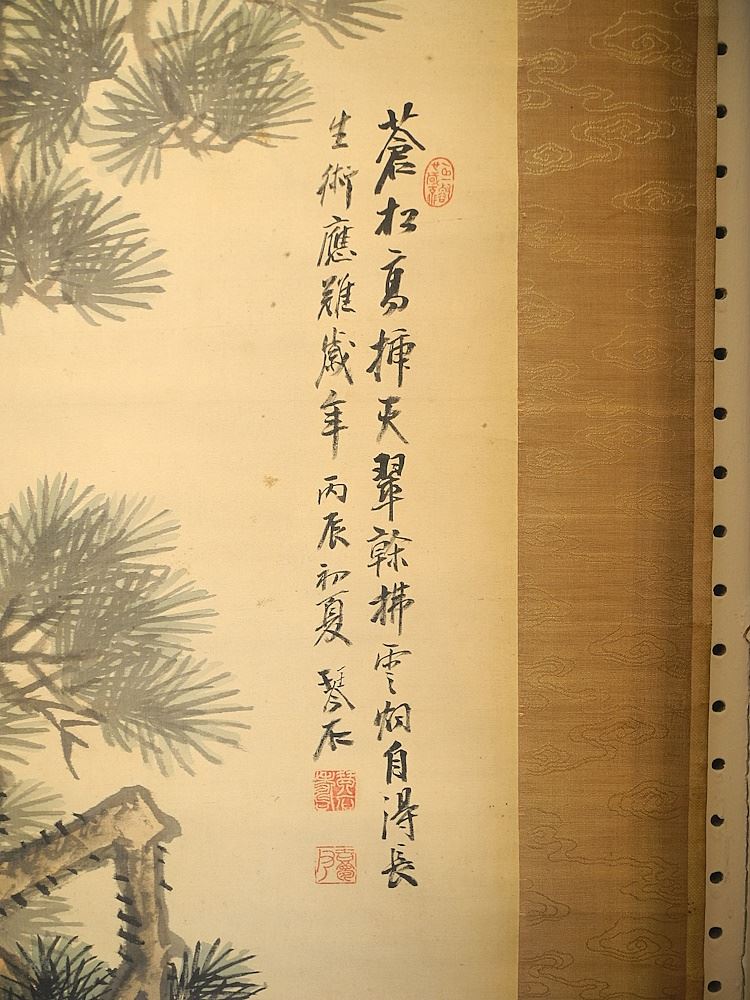 蒼松高挿天翠幹拂雲烟自得長
生術應難歳年丙辰初夏琴石